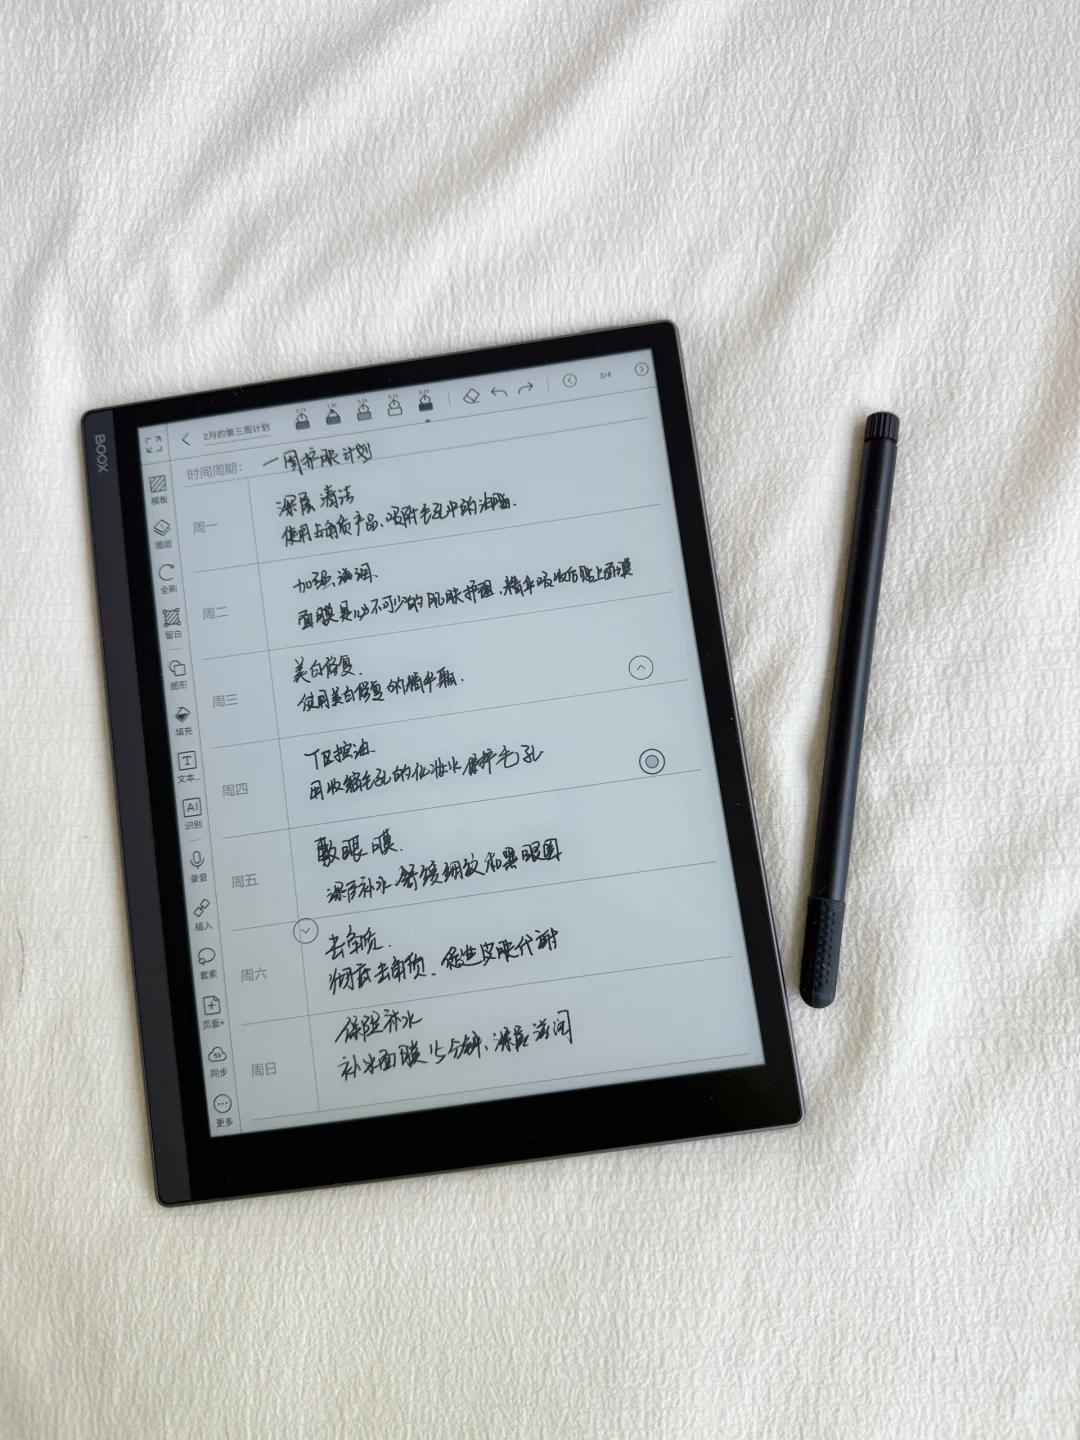 BOOX
2月的第三周计划
3/4
时间周期: 一周护肤计划
模板
图层
全刷
留白
图形
填充
文本...
AI
识别
录音
插入
套索
页面+
同步
更多
周一
深层清洁
使用去角质产品、吸附毛孔中的油脂.
周二
加强滋润.
面膜是必不可少的肌肤护理,精华吸收后贴上面膜
周三
美白修复.
使用美白修复的精华
周四
T区控油.
用收缩毛孔的化妆水保护毛孔
周五
敷眼膜.
深层补水 舒缓细纹和黑眼圈
周六
去角质.
彻底去角质.促进皮肤代谢
周日
保湿补水
补水面膜15分钟、深层滋润